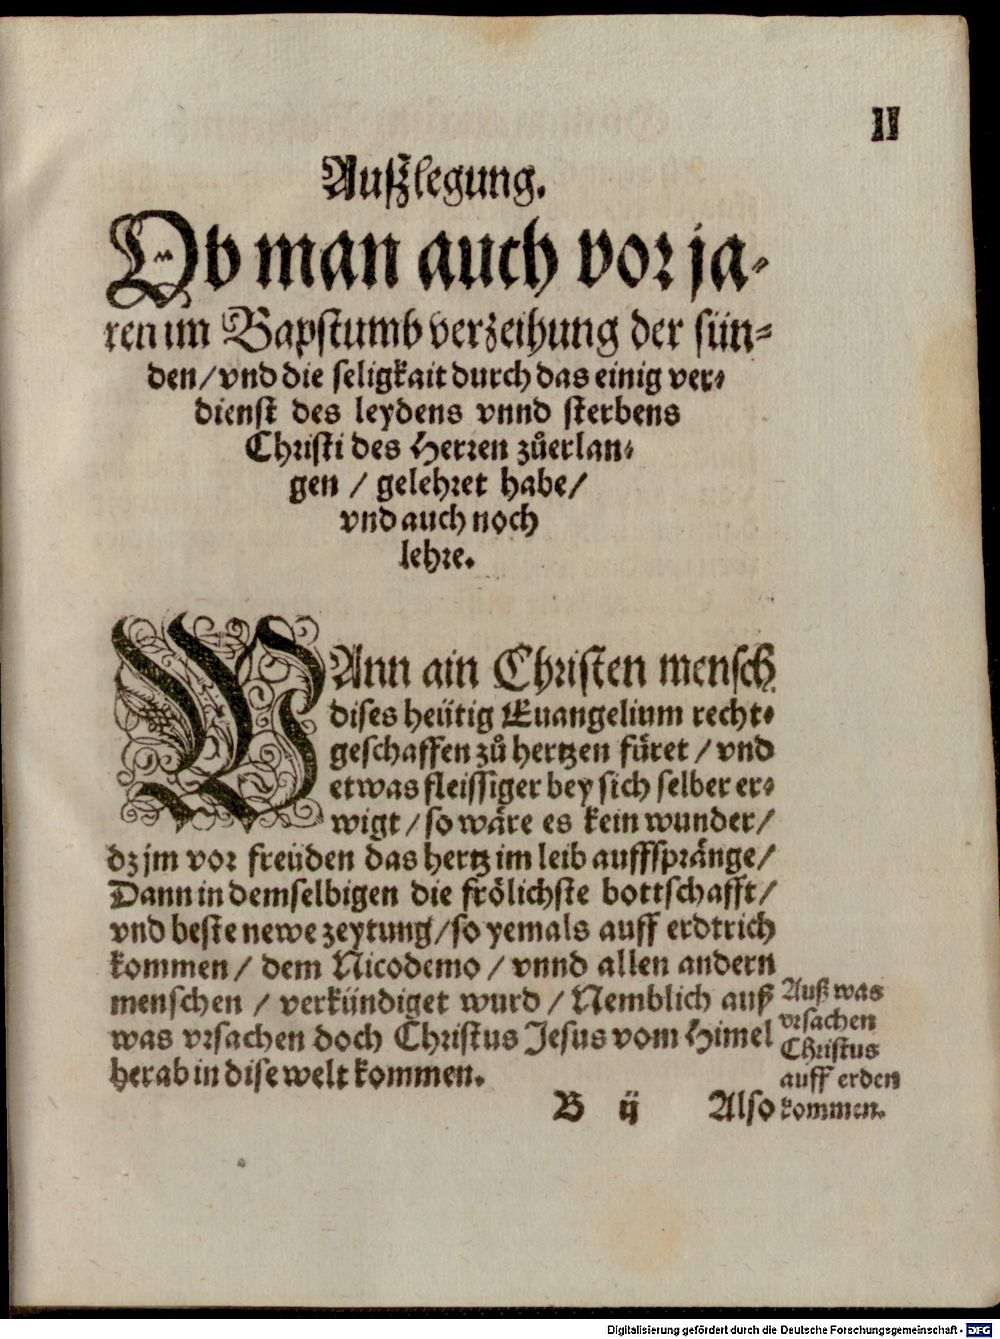 II
Außlegung.
Ob man auch vor ja-
ren im Bapstumb verzeihung der sün-
den/ vnd die seligkait durch das einig ver-
dienst des leydens vnnd sterbens
Christi des Herren zůerlan-
gen / gelehret habe/
vnd auch noch
lehre.
WAnn ain Christen mensch
dises heütig Euangelium recht-
geschaffen zů hertzen füret / vnd
etwas fleissiger bey sich selber er-
wigt / so wäre es kein wunder/
dz jm vor freüden das hertz im leib aufffspränge/
Dann in demselbigen die frölichste bottschafft/
vnd beste newe zeytung/ so yemals auff erdtrich
kommen / dem Nicodemo / vnnd allen andern
menschen / verkündiget wurd / Nemblich auß
was vrsachen doch Christus Jesus vom Himel
herab in dise welt kommen.
Auß was
vrsachen
Christus
auff erden
kommen.
B ij Also
Digitalisierung gefördert durch die Deutsche Forschungsgemeinschaft - DFG